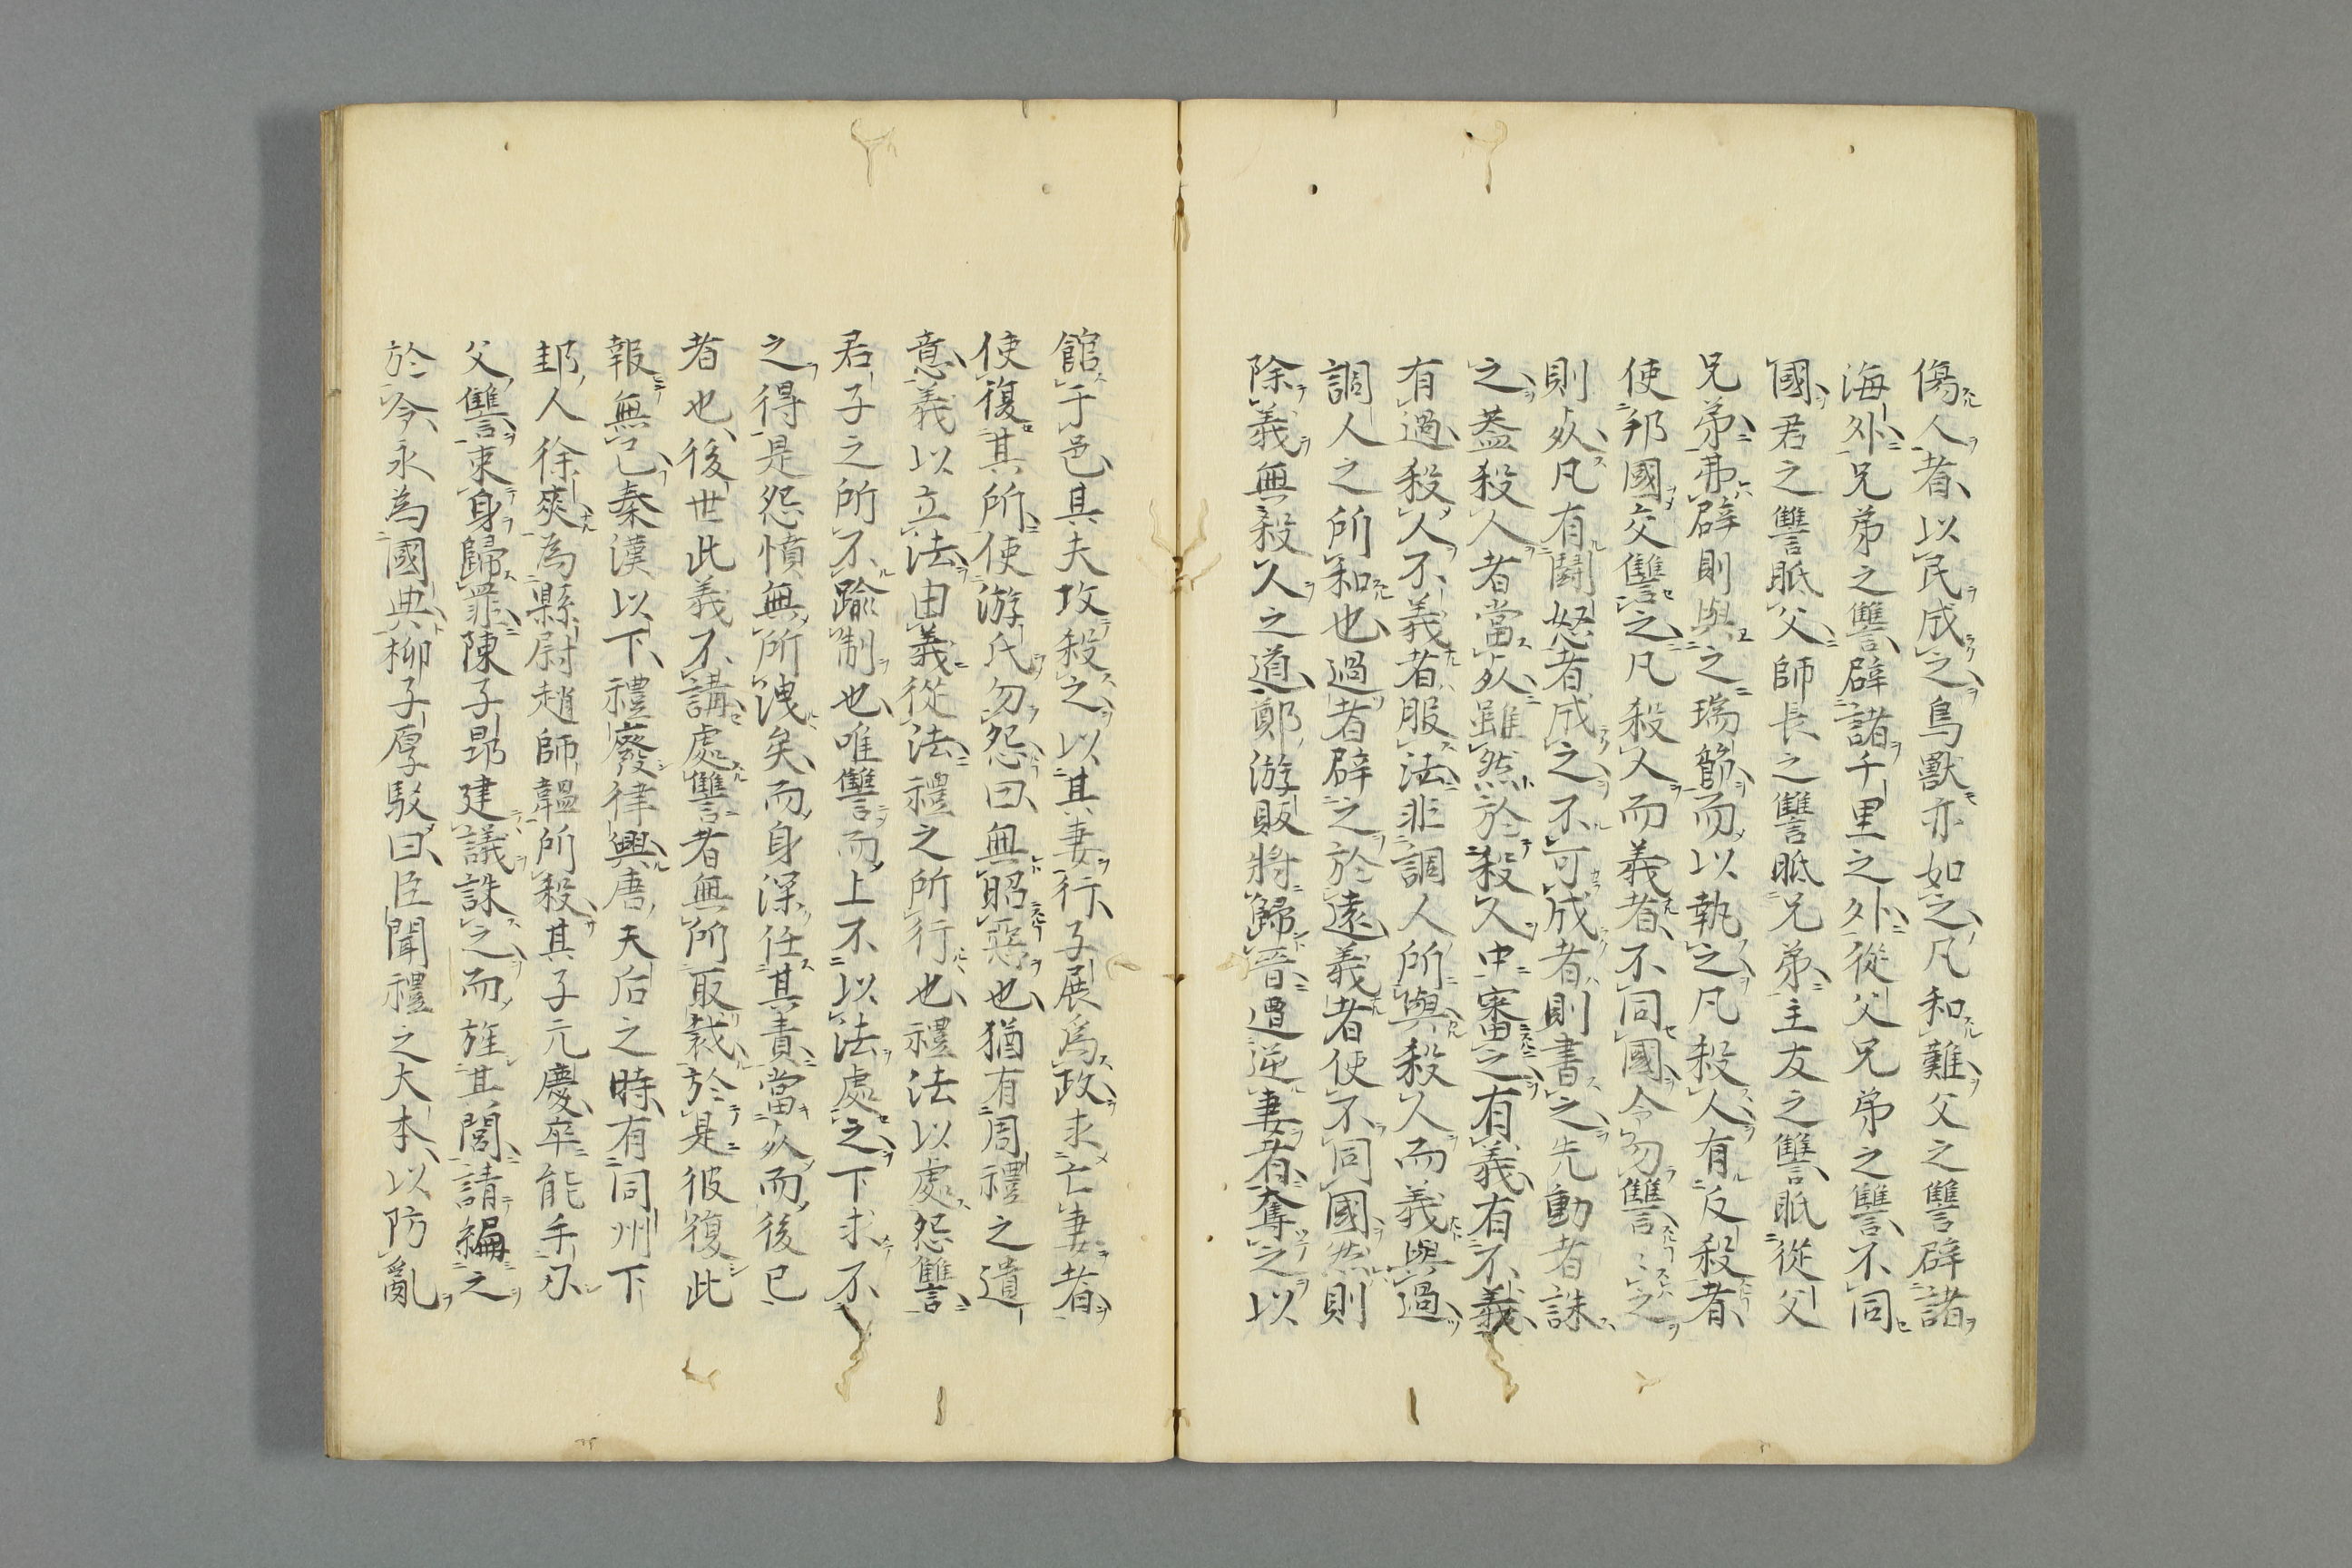 傷人者以民成之鳥獸亦如之凡和難父之讐辟諸
海外兄弟之讐辟諸千里之外從父兄弟之讐不同
國君之讐眡父師長之讐眡兄弟主友之讐眡從父
兄弟弗辟則與之瑞節而以執之凡殺人有反殺者
使邦國交讐之凡殺人而義者不同國令勿讐〻之
則死凡有鬪怒者成之不可成者則書之先動者誅
之蓋殺人者當死雖然於殺人中審之有義有不義
有過殺人不義者服法非調人所與殺人而義與過
調人之所和也過者辟之於遠義者使不同國然則
除義無殺人之道鄭游販將歸晉遭逆妻者奪之以
館于邑其夫攻殺之以其妻行子展為政求亡妻者
使復其所使游氏勿怨曰無昭惡也猶有周禮之遺
意義以立法由義從法禮之所行也禮法以處怨讐
君子之所不踰制也唯讐而上不以法處之下求不
之得是怨憤無所洩矣而身深任其責當死而後已
者也後世此義不講處讐者無所取裁於是彼復此
報無已秦漢以下禮廢律興唐天后之時有同州下
邽人徐爽為縣尉趙師韞所殺其子元慶卒能手刃
父讐束身歸罪陳子昂建議誅之而旌其閭請編之
於令永為國典柳子厚駁曰臣聞禮之大本以防亂